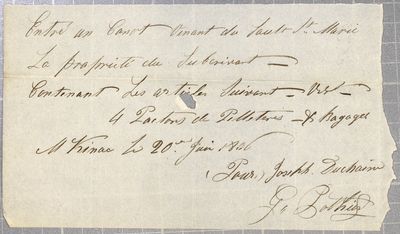 Entré un Canot Venant du Sault St. Marie
La propriété du Suscrivant —
Contenant Les articles Suivant — Viz —
4 Pactons de Pelleteries — & Bagages
McKinac le 20 Juin
(Pour) Joseph Duchaine
G. Pothier